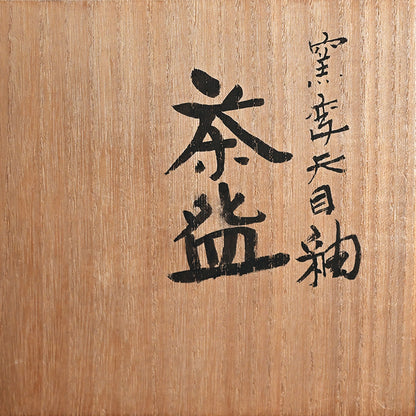 窯変天目釉
茶盌